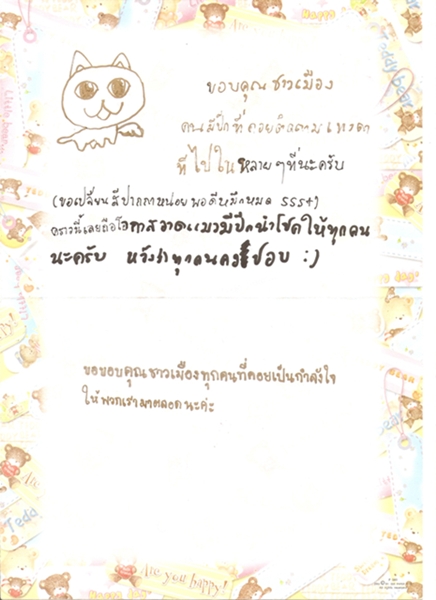 ขอบคุณชาวเมือง
คนมีปีกที่คอยติดตามพวกเรา
ที่ไปในหลายๆที่นะครับ
(ขอเปลี่ยนสีปากกาหน่อย พอดีหมึกหมด 555+)
คราวนี้เลยถือโอกาสวาดแมวมีปีกนำโชคให้ทุกคน
นะครับ หวังว่าทุกคนคงชอบ :)
ขอขอบคุณชาวเมืองทุกคนที่คอยเป็นกำลังใจ
ให้พวกเรามาตลอดนะค่ะ
Are you happy!